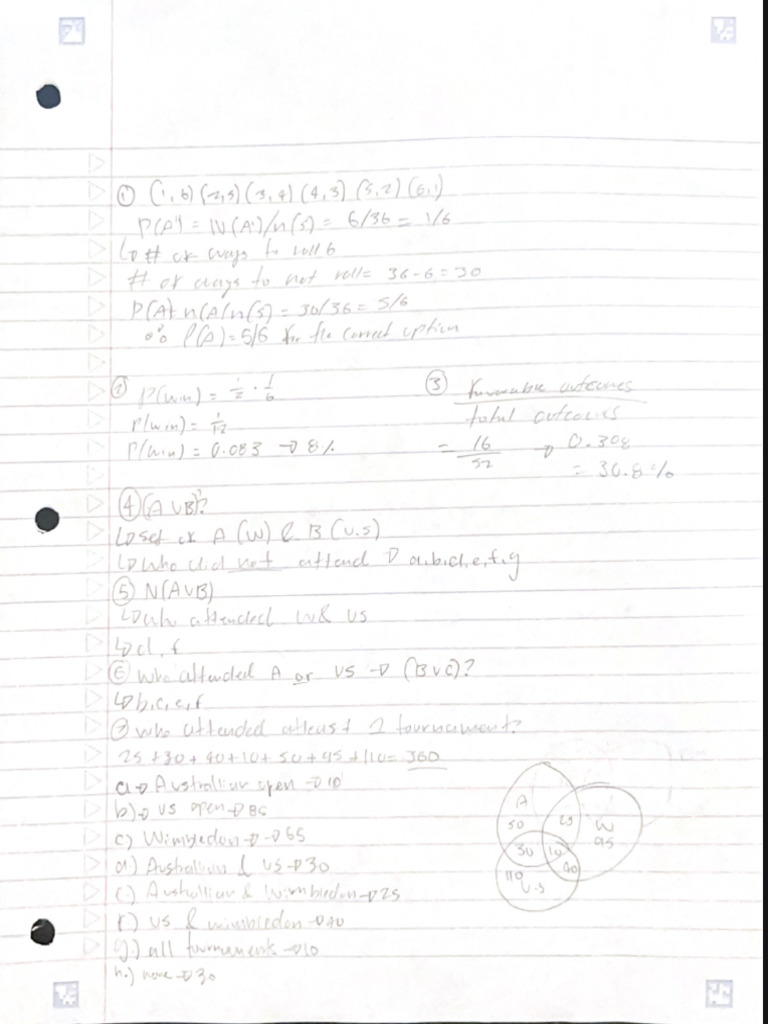 ① (1,6) (2,5) (3,4) (4,3) (5,2) (6,1)
P(A') = N(A')/n(s) = 6/36 = 1/6
↳ # of ways to roll 6
# of ways to not roll = 36-6 = 30
P(A) n(A/n(s) = 30/36 = 5/6
∴ P(A) = 5/6 for the correct option
② P(win) = 1/2 · 1/6
P(win) = 1/12
P(win) = 0.083 → 8%
③ Favourable outcomes
total outcomes
= 16/52 → 0.308
= 30.8%
④ (A∪B)'?
↳ set of A (W) & B (U.S)
↳ who did not attend → a,b,c,d,e,f,g
⑤ N(A∪B)
↳ who attended W & US
↳ d, f
⑥ who attended A or US → (B∪C)?
↳ b,c,e,f
⑦ who attended atleast 1 tournament?
25 + 30 + 40 + 10 + 50 + 95 + 110 = 360
a → Australian open → 10
b) → US open → 85
c) Wimbledon → → 65
d) Australian & US → 30
Australian & Wimbledon → 25
f.) US & wimbledon → 40
g.) all tournaments → 10
h.) none → 30
A
50
25
W
95
30
10
40
110
U.S